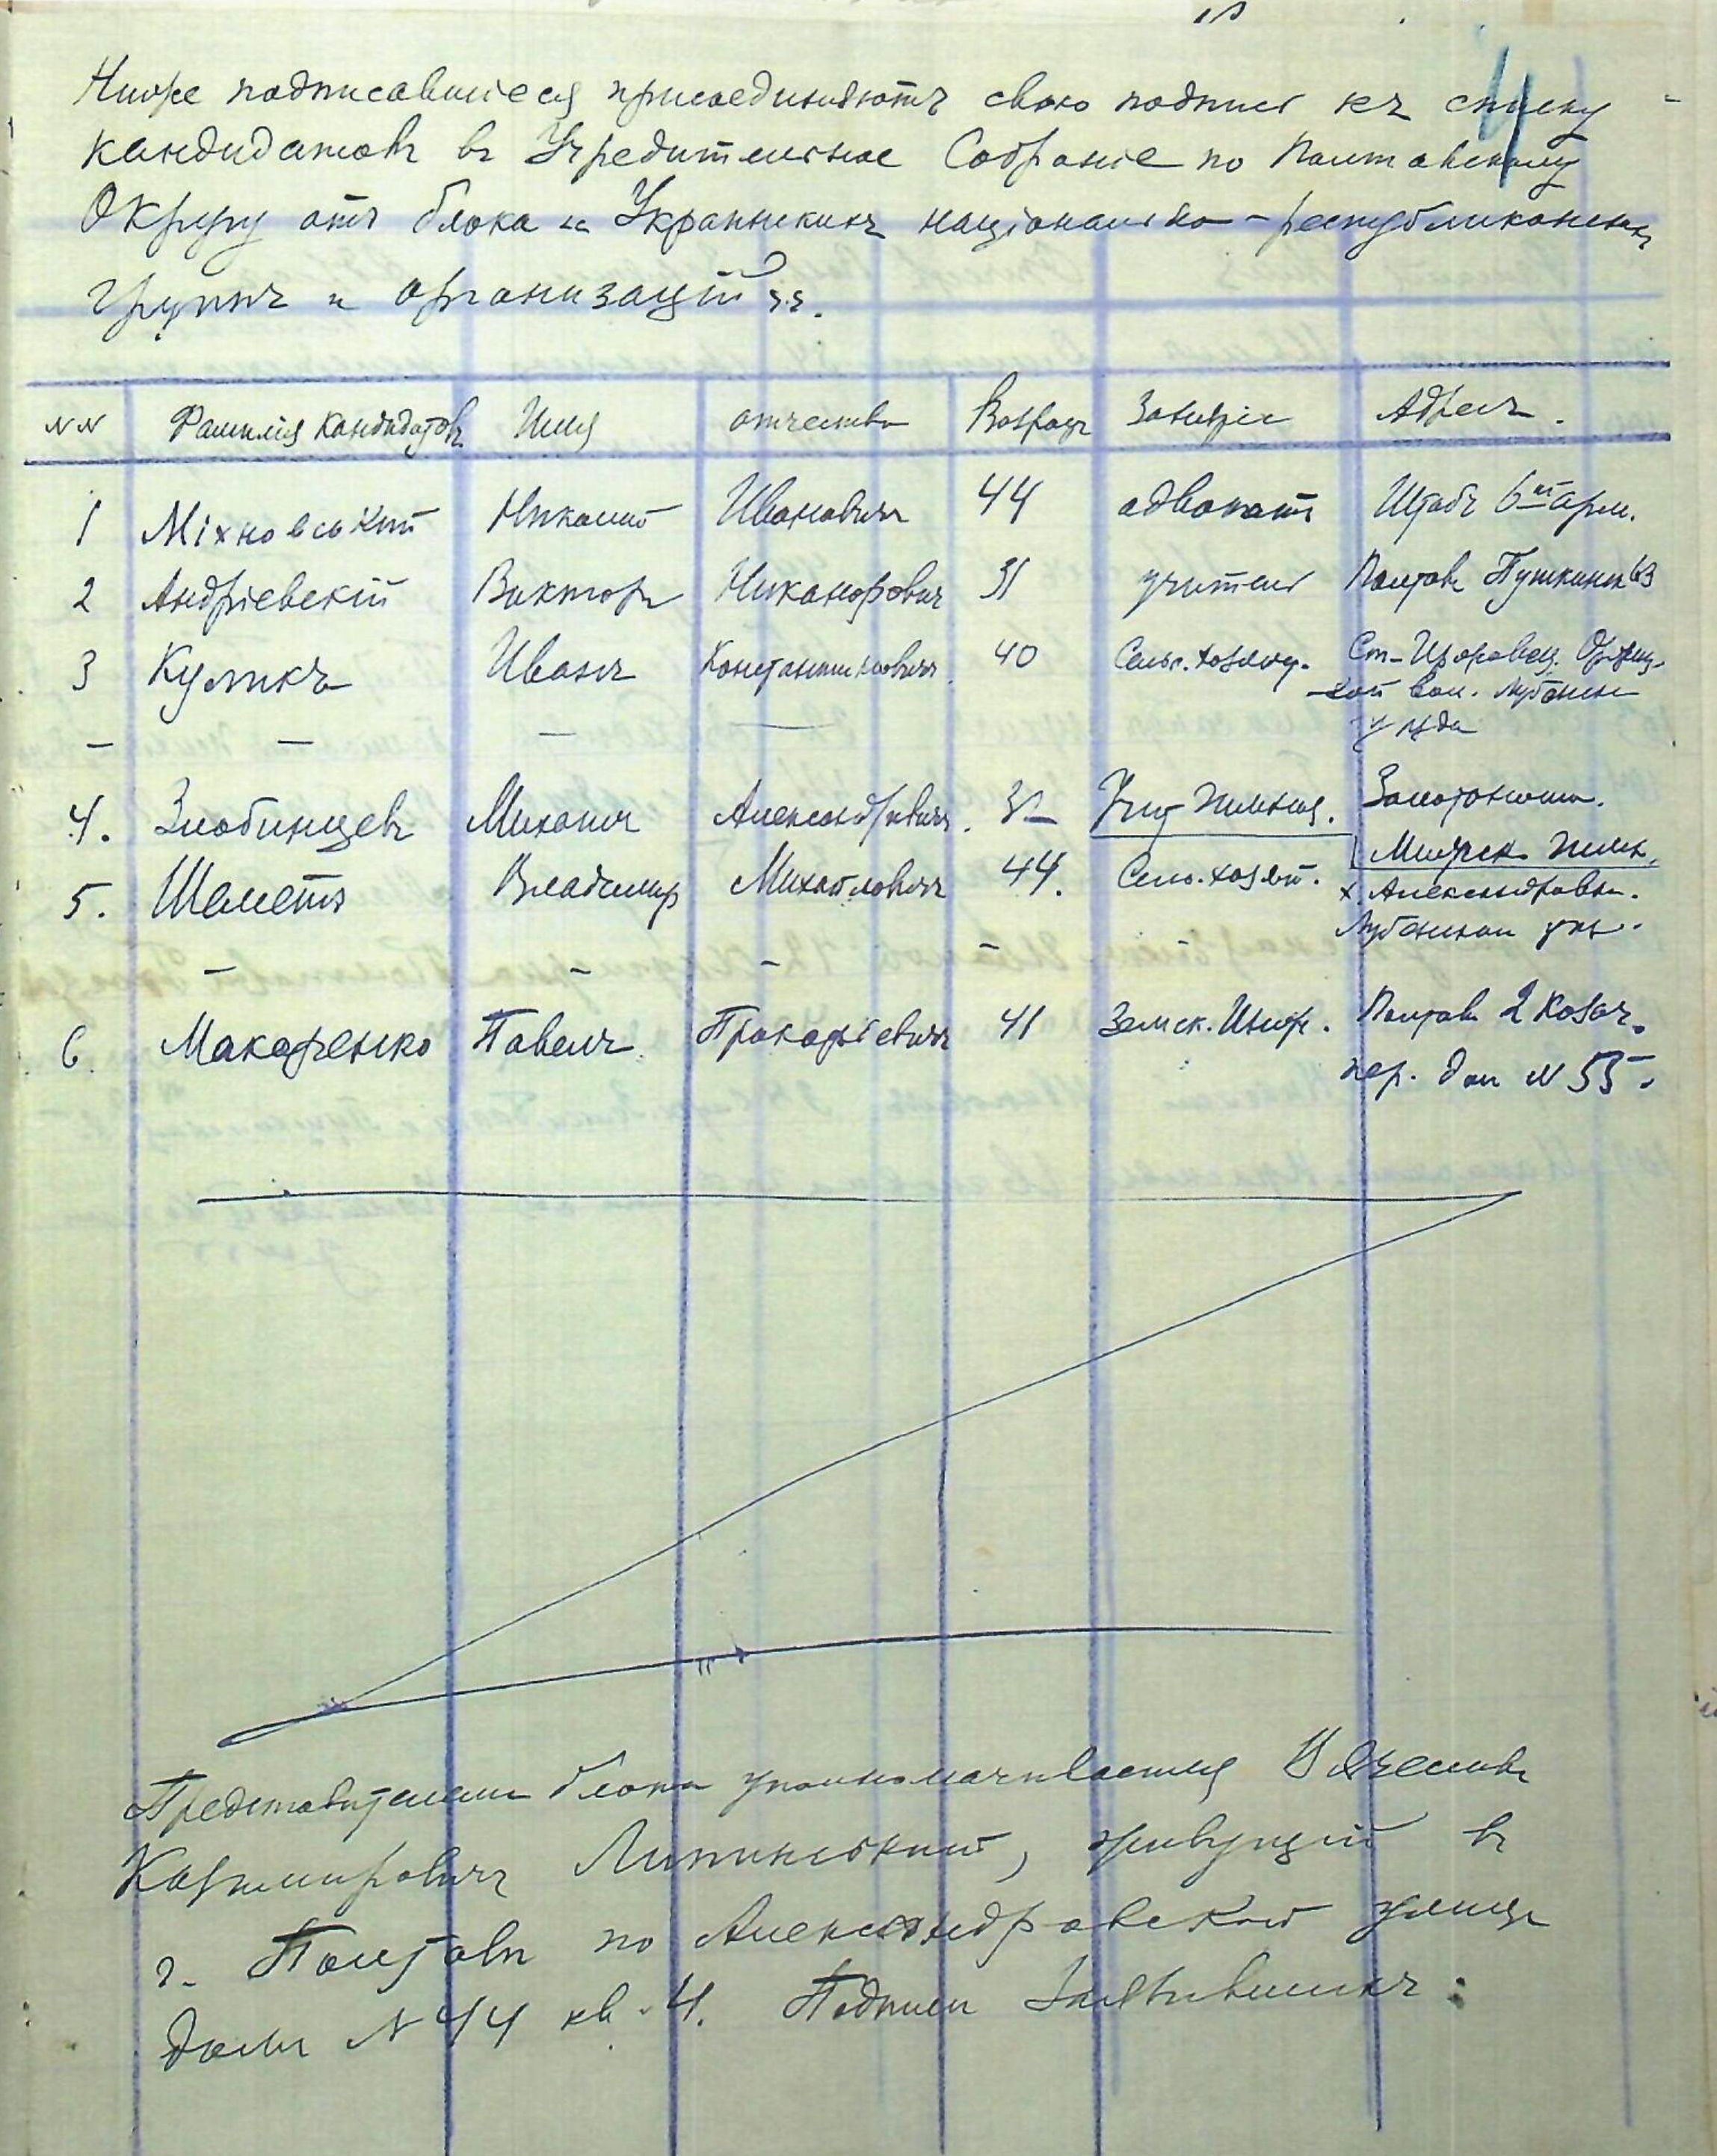 4
Ниже подписавшиеся присоединяютъ свою подпись къ списку
кандидатовъ въ Учредительное Собраніе по Полтавскому
Округу отъ блока „Украинскихъ національно-республиканскихъ
группъ и организацій“.
NN Фамилія кандидатовъ Имя отчество Возрастъ Занятіе Адресъ.
1 Міхновській Николай Ивановичъ 44 адвокатъ Штабъ 6ой арм.
2 Андріевскій Викторъ Никаноровичъ 31 учитель Полтава Пушкинск 63
3 Куликъ Иванъ Константиновичъ 40 Сельс. хозяин.
кой вол. Лубенск
уѣзда
4. Злобинцевъ Михаилъ Александровичъ. 32 Учит гимназ. Золотоноша.
Мужск гимн.
5. Шеметъ Владиміръ Михайловичъ 44. Сель. хозяй. х. Александровка.
Лубенскаго уѣз.
6. Макаренко Павелъ Прокофіевичъ 41 Земск. Инж. Полтава 2 Козач.
пер. дом N 55.
Представителемъ блока уполномачивается Вячеславъ
Казиміровичъ Липинській, живущій въ
г. Полтавѣ по Александровской улицѣ
домъ N 44 кв. 4. Подписи Заявившихъ: